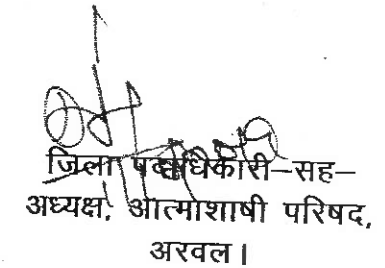 जिला पदाधिकारी–सह–
अध्यक्ष, आत्माशाषी परिषद,
अरवल।